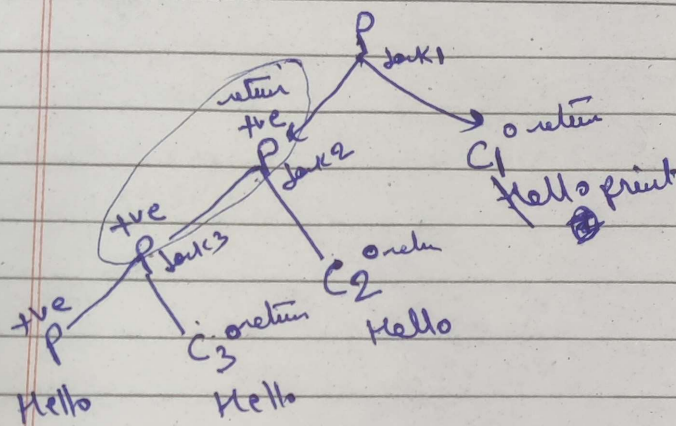 P
fork1
return
+ve
P
fork2
0 return
C1
Hello print
+ve
P
fork3
0 retun
C2
Hello
+ve
P
0 return
C3
Hello
Hello